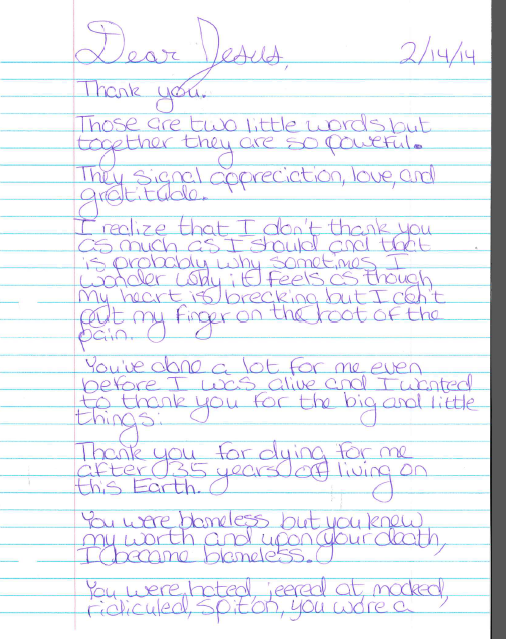 Dear Jesus,
2/14/14
Thank you.
Those are two little words but
together they are so powerful.
They signal appreciation, love, and
gratitude.
I realize that I don't thank you
as much as I should and that
is probably why sometimes I
wonder why it feels as though
my heart is breaking but I can't
put my finger on the root of the
pain.
You've done a lot for me even
before I was alive and I wanted
to thank you for the big and little
things:
Thank you for dying for me
after 35 years of living on
this Earth.
You were blameless but you knew
my worth and upon your death,
I became blameless.
You were hated, jeered at, mocked,
ridiculed, spit on, you wore a